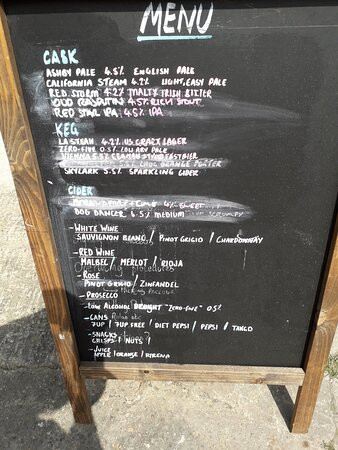 MENU
CASK
ASHBY PALE 4.5% ENGLISH PALE
CALIFORNIA STEAM 4.2% LIGHT, EASY PALE
RED STORM 4.2% MALTY IRISH BITTER
OLD RASPUTIN 4.5% RICH STOUT
RED STAR IPA 4.5% IPA
KEG
LA STEAM 4.2% US CRAFT LAGER
ZERO-FIVE 0.5% LOW ABV PALE
VIENNA 5.5% GERMAN STYLE FESTBIER
CHOC ORANGE PORTER
SKYLARK 5.5% SPARKLING CIDER
CIDER
4% SWEET
DOG DANCER 6.5% MEDIUM
- WHITE WINE
SAUVIGNON BLANC / PINOT GRIGIO / CHARDONNAY
- RED WINE
MALBEC / MERLOT / RIOJA
- ROSE
PINOT GRIGIO / ZINFANDEL
- PROSECCO
- LOW ALCOHOL DRAUGHT "ZERO-FIVE" 0.5%
- CANS
7UP / 7UP FREE / DIET PEPSI / PEPSI / TANGO
- SNACKS
CRISPS / NUTS
- JUICE
APPLE / ORANGE / RIBENA